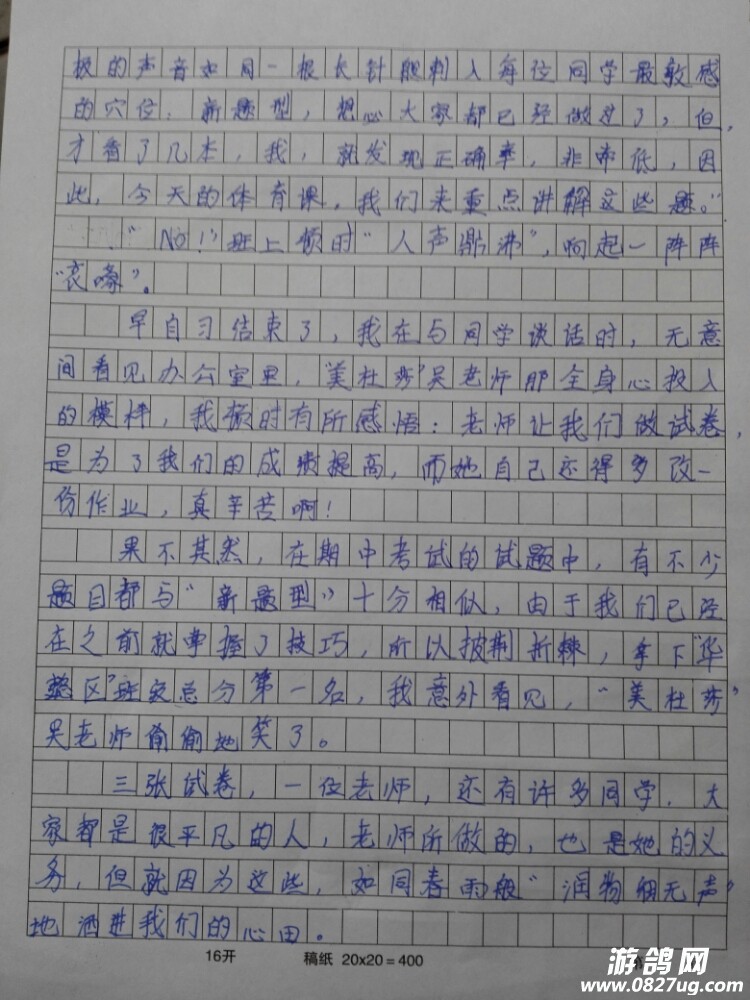 极的声音如同一根长针般刺入每位同学最敏感
的穴位。新题型，想必大家都已经做过了，但，
才看了几本，我，就发现正确率，非常低，因
此，今天的体育课，我们来重点讲解这些题。”
“NO！”班上顿时“人声鼎沸”，响起一阵阵
“哀嚎”。
早自习结束了，我在与同学谈话时，无意
间看见办公室里，“美杜莎”吴老师那全身心投入
的模样，我顿时有所感悟：老师让我们做试卷，
是为了我们的成绩提高，而她自己还得多改一
份作业，真辛苦啊！
果不其然，在期中考试的试题中，有不少
题目都与“新题型”十分相似，由于我们已经
在之前就掌握了技巧，所以披荆折棘，拿下“华
区”班级总分第一名，我意外看见，“美杜莎”
吴老师偷偷地笑了。
三张试卷，一位老师，还有许多同学，大
家都是很平凡的人，老师所做的，也是她的义
务，但就因为这些，如同春雨般“润物细无声”
地洒进我们的心田。
16开 稿纸 20×20=400
游鸽网
www.0827ug.com